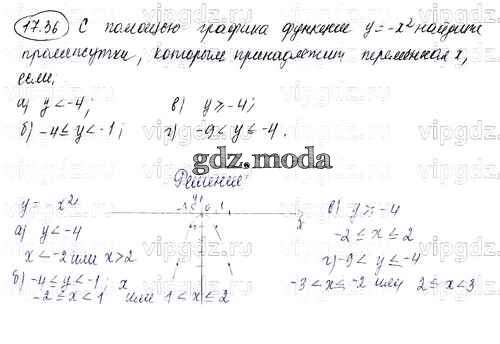 17.36 С помощью графика функции y = -x² найдите
промежутки, которым принадлежит переменная x,
если:
а) y < -4;
в) y ≥ -4;
б) -4 ≤ y < -1;
г) -9 < y ≤ -4.
gdz.moda
Решение
y = -x²
а) y < -4
x < -2 или x > 2
б) -4 ≤ y < -1; x
-2 ≤ x < 1 или 1 < x ≤ 2
в) y ≥ -4
-2 ≤ x ≤ 2
г) -9 < y ≤ -4
-3 < x ≤ -2 или 2 ≤ x < 3